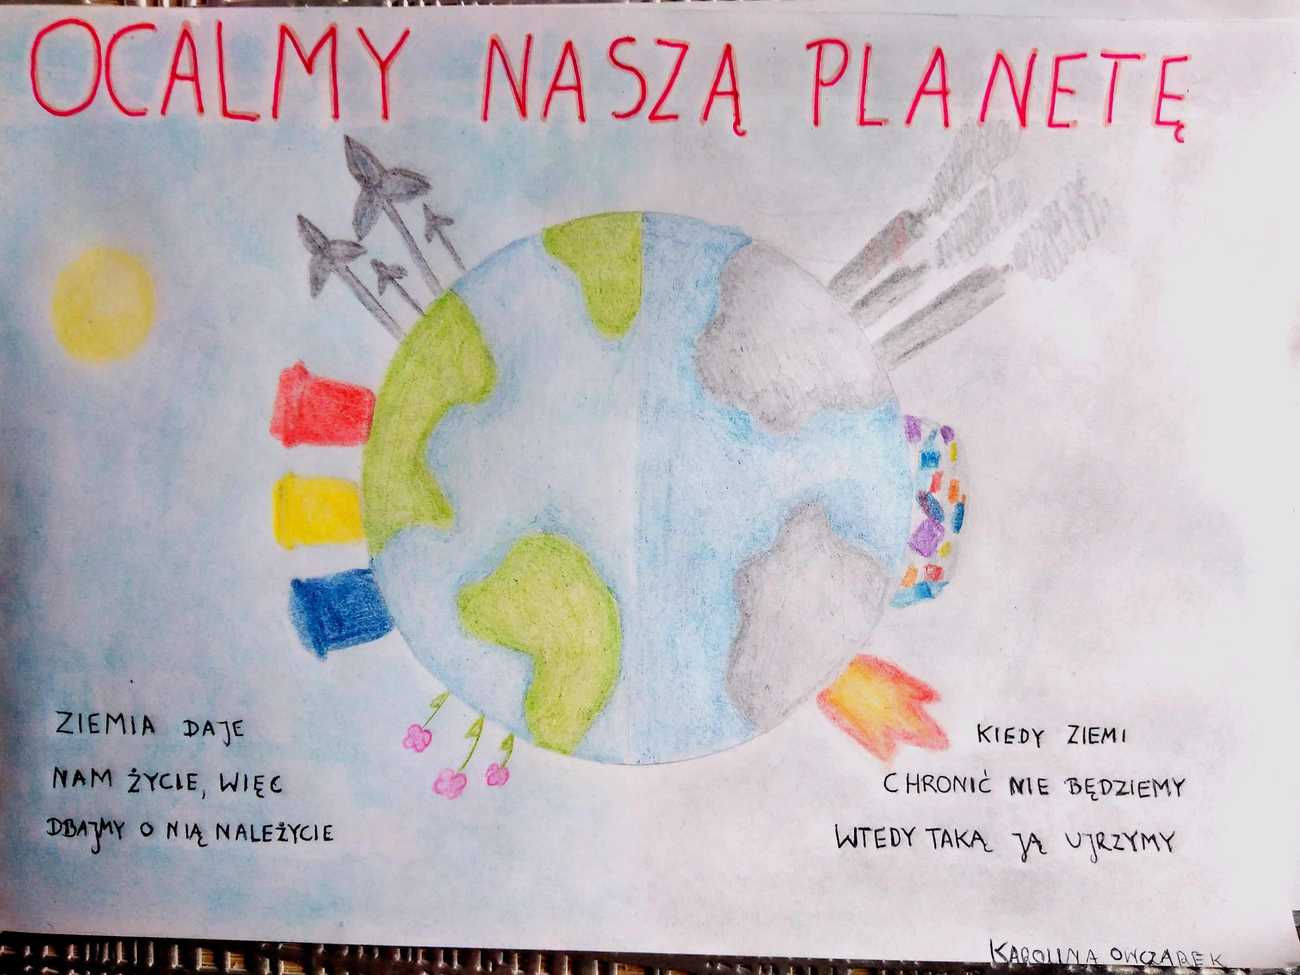 OCALMY NASZĄ PLANETĘ
ZIEMIA DAJE
NAM ŻYCIE, WIĘC
DBAJMY O NIĄ NALEŻYCIE
KIEDY ZIEMI
CHRONIĆ NIE BĘDZIEMY
WTEDY TAKĄ JĄ UJRZYMY
KAROLINA OWCZAREK